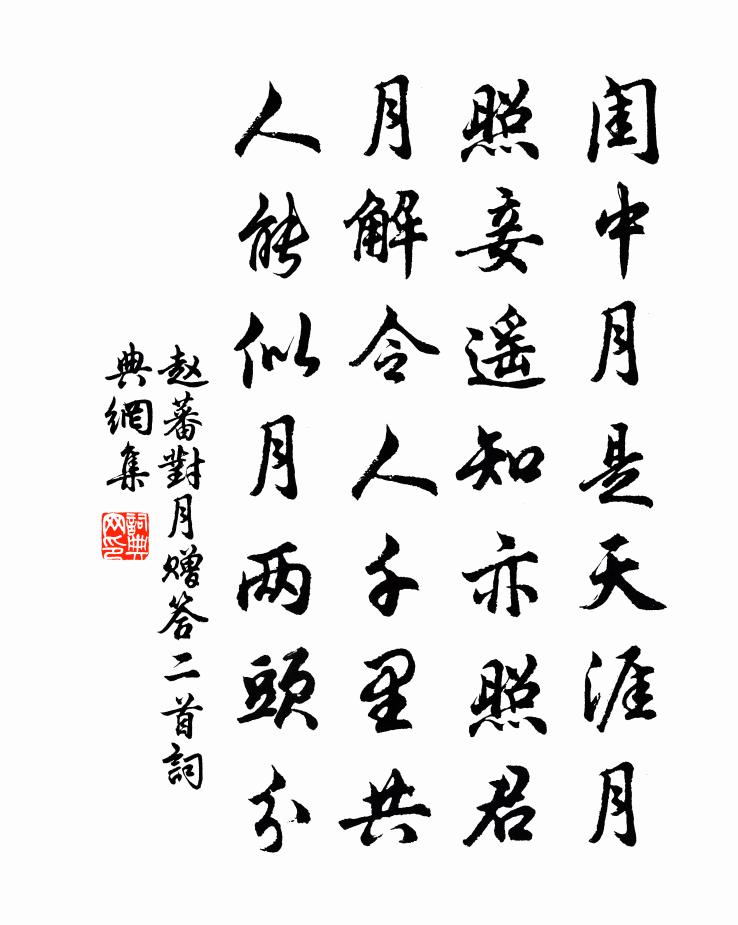 闺中月是天涯月
照妾遥知亦照君
月解令人千里共
人能似月两頭分
赵蕃對月赠答二首詞
典網集
詞典
网印